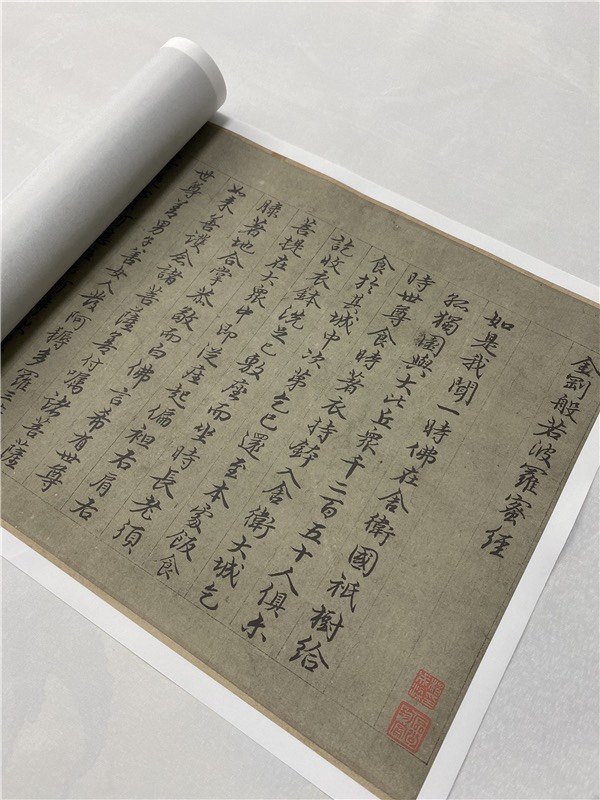 金剛般若波羅蜜經
如是我聞一時佛在舍衛國祇樹給
孤獨園與大比丘眾千二百五十人俱尒
時世尊食時著衣持鉢入舍衛大城乞
食於其城中次第乞已還至本處飯食
訖收衣鉢洗足已敷座而坐時長老須
菩提在大眾中即從座起偏袒右肩右
膝著地合掌恭敬而白佛言希有世尊
如來善護念諸菩薩善付囑諸菩薩
世尊善男子善女人發阿耨多羅三